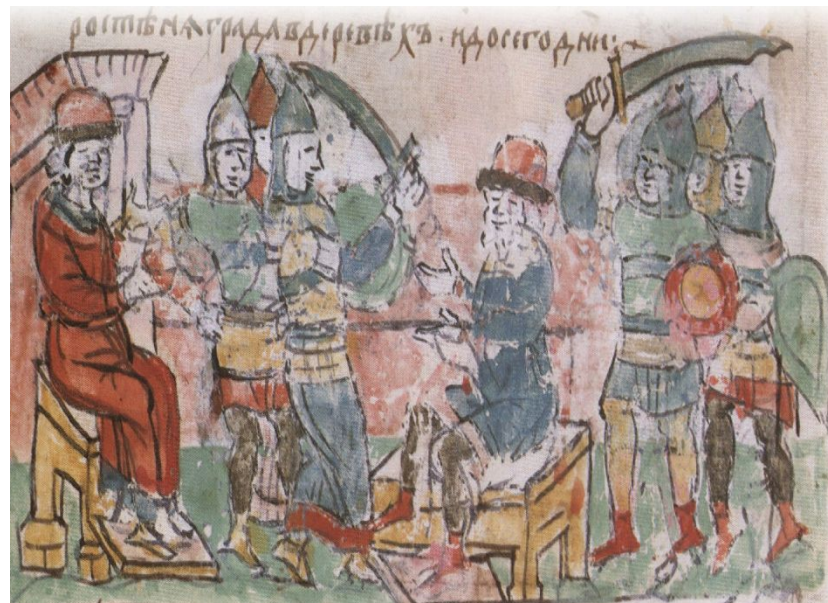 ростѣнѧ града вдеревѣхъ · идосегодне:~